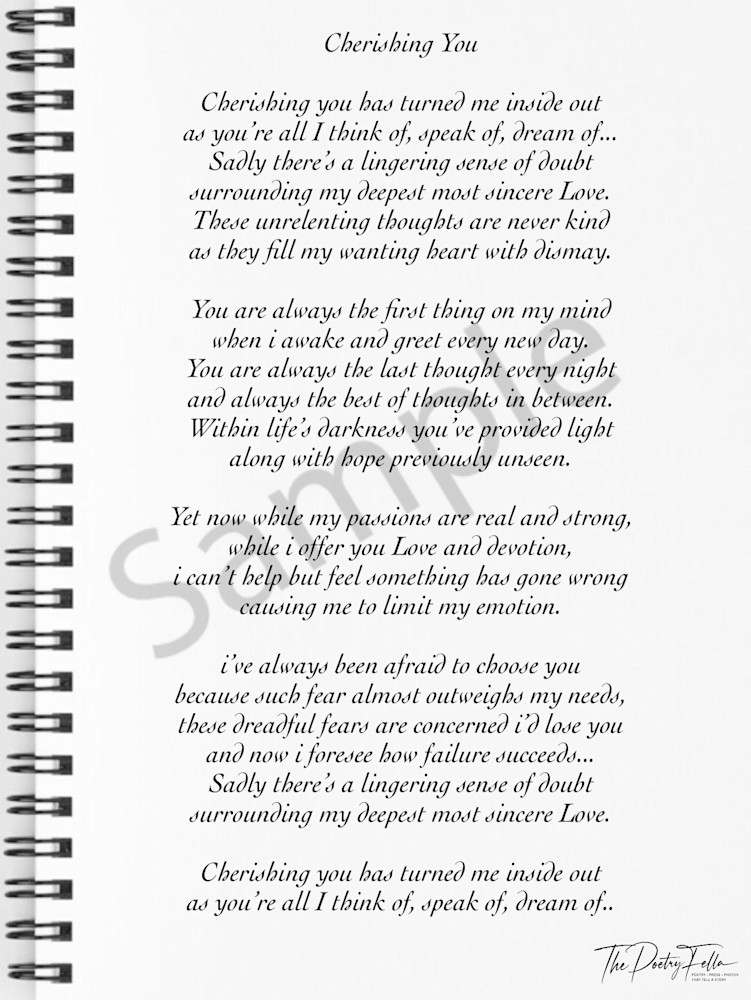 Cherishing You
Cherishing you has turned me inside out
as you're all I think of, speak of, dream of...
Sadly there's a lingering sense of doubt
surrounding my deepest most sincere Love.
These unrelenting thoughts are never kind
as they fill my wanting heart with dismay.
You are always the first thing on my mind
when i awake and greet every new day.
You are always the last thought every night
and always the best of thoughts in between.
Within life's darkness you've provided light
along with hope previously unseen.
Yet now while my passions are real and strong,
while i offer you Love and devotion,
i can't help but feel something has gone wrong
causing me to limit my emotion.
i've always been afraid to choose you
because such fear almost outweighs my needs,
these dreadful fears are concerned i'd lose you
and now i foresee how failure succeeds...
Sadly there's a lingering sense of doubt
surrounding my deepest most sincere Love.
Cherishing you has turned me inside out
as you're all I think of, speak of, dream of..
Sample
ThePoetryFella
POETRY • PROSE • PHOTOS
THAT TELL A STORY